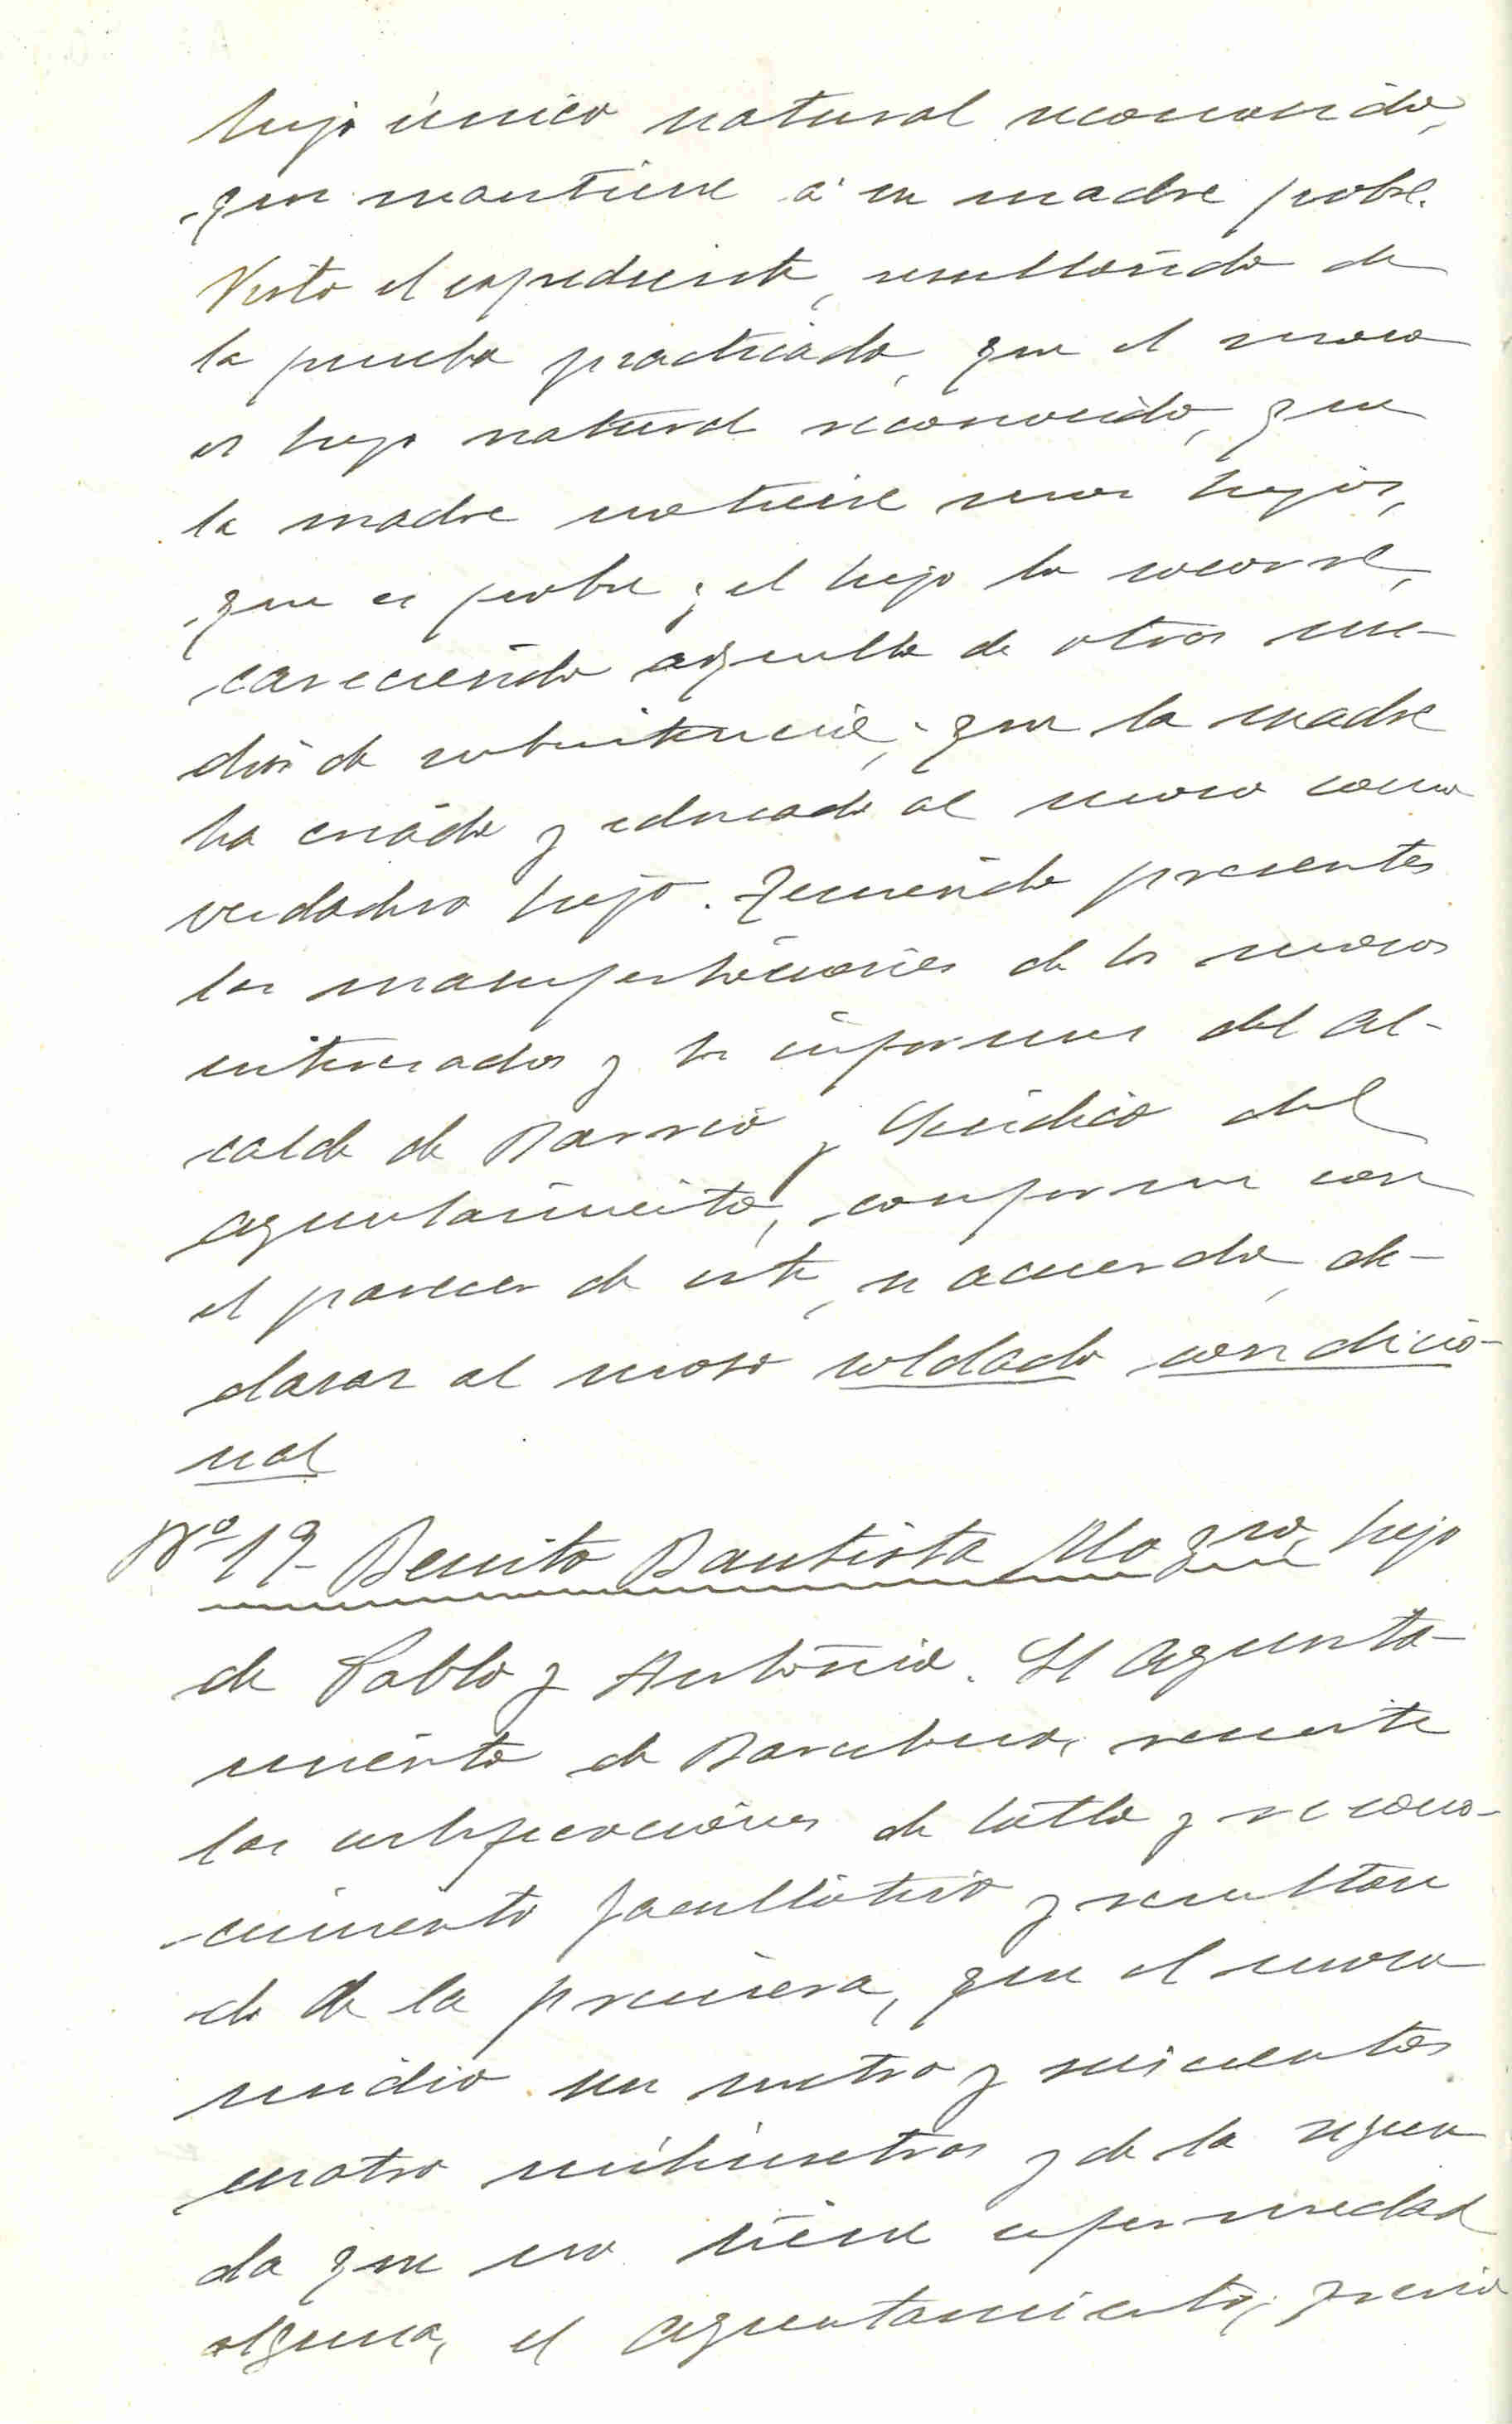 hijo único natural reconocido,
que mantiene á su madre pobre.
Visto el expediente, resultando de
la prueba practicada, que el mozo
es hijo natural reconocido, que
la madre no tiene mas hijos,
que es pobre y el hijo la socorre,
careciendo aquella de otros me-
dios de subsistencia; que la madre
ha criado y educado al mozo como
verdadero hijo. Teniendo presentes
las manifestaciones de los mozos
interesados y los informes del Al-
calde de Barrio y Síndico del
Ayuntamiento, conforme con
el parecer de este, se acuerda, de-
clarar al mozo soldado condicio-
nal
Nº 19- Benito Bautista hijo
de Pablo y Antonia. El Ayunta-
miento de remite
las certificaciones de talla y recono-
cimiento facultativo y resultan
do de la primera, que el mozo
midió un metro y seiscientos
cuatro milímetros y de la segun
da que no tiene enfermedad
alguna, el Ayuntamiento, previo